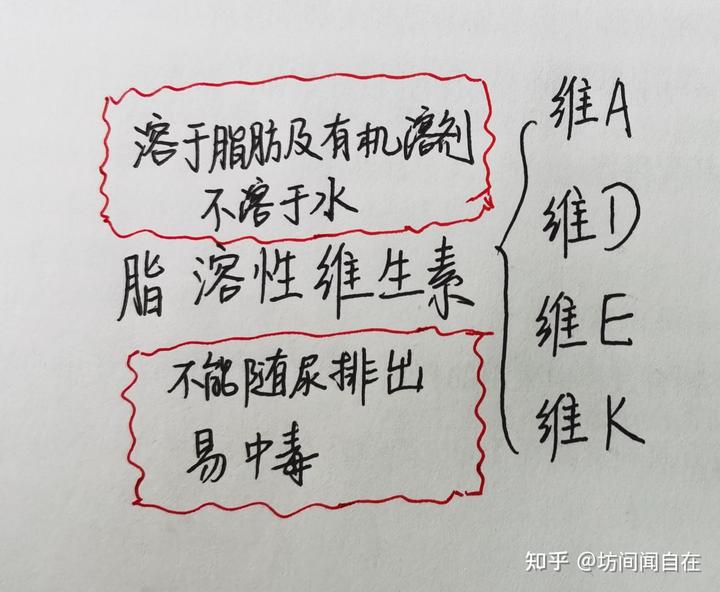 溶于脂肪及有机溶剂
不溶于水
脂溶性维生素
不能随尿排出
易中毒
维A
维D
维E
维K
知乎 @坊间闻自在